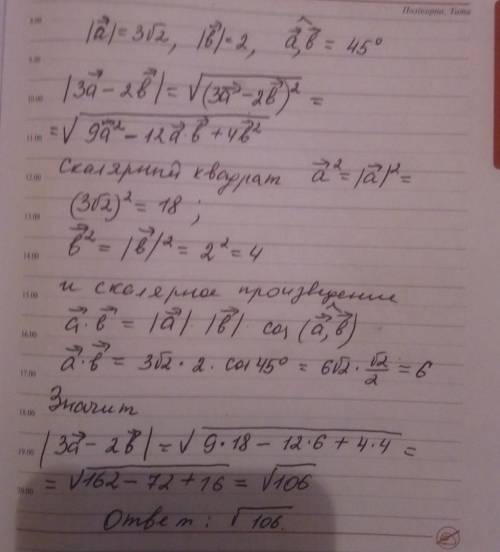 Полікарп, Тита
8.00
|a⃗| = 3√2, |b⃗| = 2, a⃗,^b⃗ = 45°
9.00
|3a⃗ - 2b⃗| = √(3a⃗ - 2b⃗)² =
10.00
= √9a⃗² - 12a⃗·b⃗ + 4b⃗²
11.00
скалярный квадрат a⃗² = |a⃗|² =
12.00
(3√2)² = 18 ;
13.00
b⃗² = |b⃗|² = 2² = 4
14.00
и скалярное произведение
15.00
a⃗·b⃗ = |a⃗|·|b⃗|·cos(a⃗,^b⃗)
16.00
a⃗·b⃗ = 3√2·2·cos45° = 6√2·√2/2 = 6
17.00
Значит
18.00
|3a⃗ - 2b⃗| = √9·18 - 12·6 + 4·4 =
19.00
= √162 - 72 + 16 = √106
20.00
Ответ: √106.